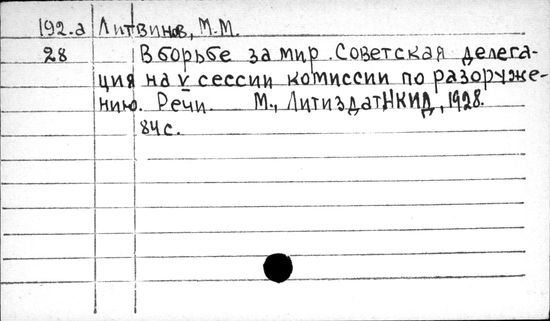 192.а Литвинов, М.М.
28 В борьбе за мир. Советская делега-
ция на V сессии комиссии по разоруже-
нию. Речи. М., Литиздат НКИД, 1928.
84 с.